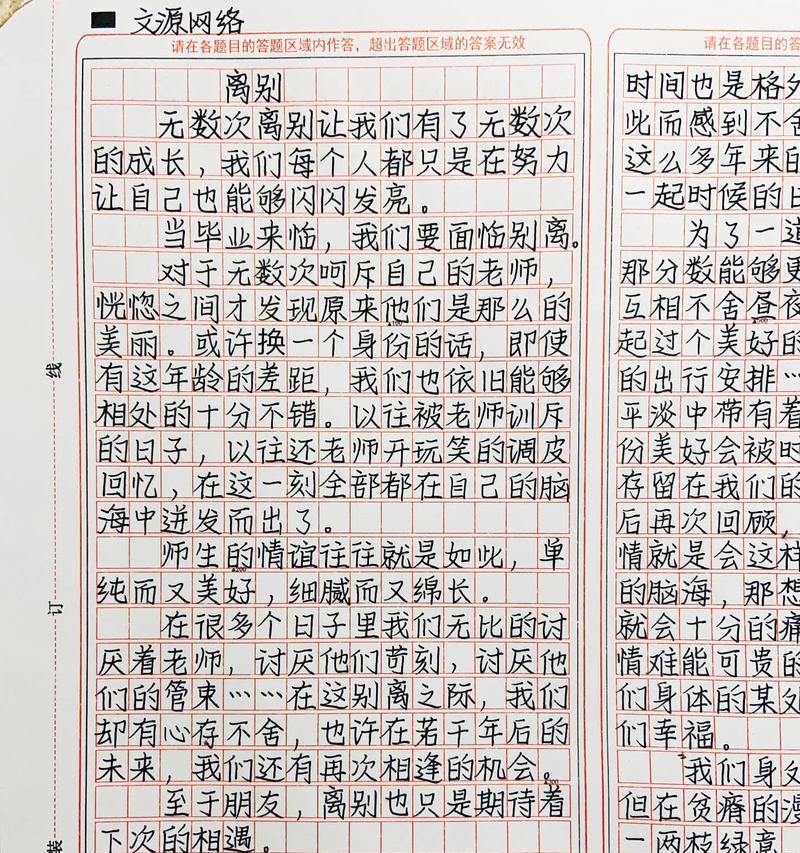 文源网络
请在各题目的答题区域内作答，超出答题区域的答案无效
离别
无数次离别让我们有了无数次
的成长，我们每个人都只是在努力
让自己也能够闪闪发亮。
当毕业来临，我们要面临别离。
对于无数次呵斥自己的老师，
恍惚之间才发现原来他们是那么的
美丽。或许换一个身份的话，即使
有这年龄的差距，我们也依旧能够
相处的十分不错。以往被老师训斥
的日子，以往还老师开玩笑的调皮
回忆，在这一刻全部都在自己的脑
海中迸发而出了。
师生的情谊往往就是如此，单
纯而又美好，细腻而又绵长。
在很多个日子里我们无比的讨
厌着老师，讨厌他们苛刻，讨厌他
们的管束……在这别离之际，我们
却有心存不舍，也许在若干年后的
未来，我们还有再次相逢的机会。
至于朋友，离别也只是期待着
下次的相遇。
线
订
装
请在各题目的答
时间也是格外
此而感到不舍
这么多年来的
一起时候的日
为了一道
那分数能够更
互相不舍昼夜
起过个美好的
的出行安排…
平淡中带有着
份美好会被时
存留在我们的
后再次回顾，
情就是会这样
的脑海，那想
就会十分的痛
情难能可贵的
们身体的某处
们幸福。
我们身处
但在贫瘠的漫
一两枝绿意